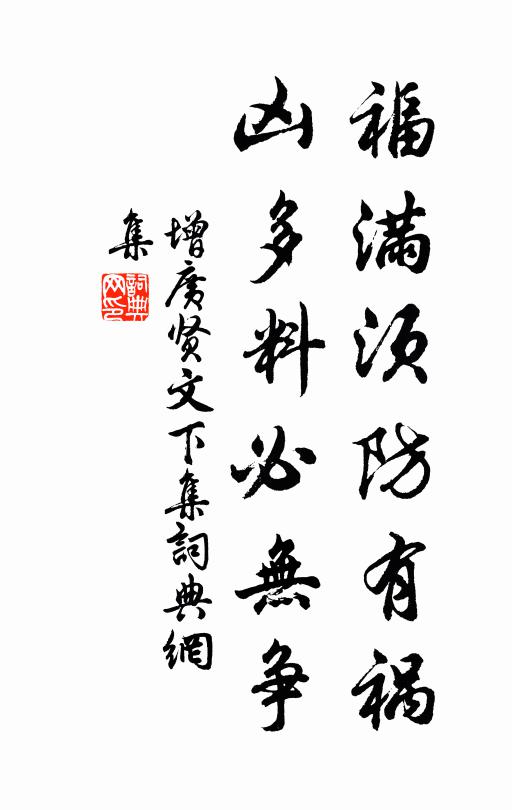 福满须防有祸
凶多料必無争
增廣贤文下集詞典網
集
詞典网印